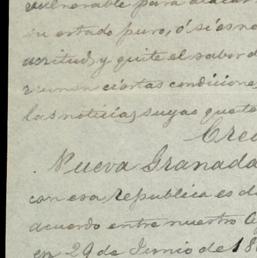 vulnerable para atacar
su estado puro, ó si es no
acritud, y quite el sabor d
reunan ciertas condicione
las noticias suyas que te
Cree
Nueva Granada
con esa republica es d
acuerdo entre nuestro C
en 29 de Junio de 18